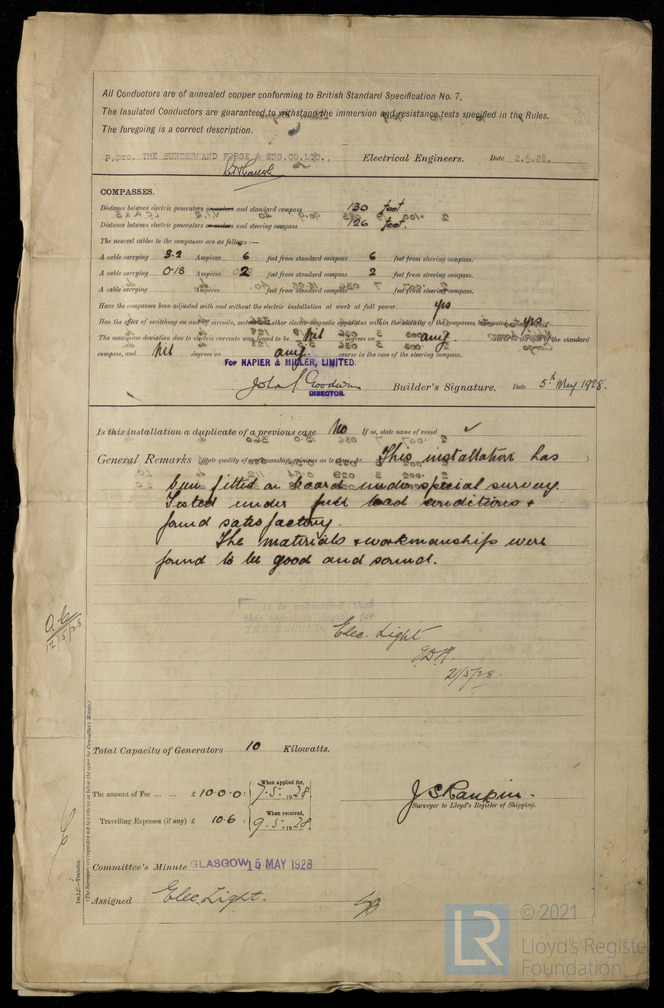 All Conductors are of annealed copper conforming to British Standard Specification No. 7.
The Insulated Conductors are guaranteed to withstand the immersion and resistance tests specified in the Rules.
The foregoing is a correct description.
p.pro. THE SUNDERLAND FORGE & ENG.CO.LTD., Electrical Engineers. Date 2.5.28.
COMPASSES.
Distance between electric generators or motors and standard compass 130 feet
Distance between electric generators or motors and steering compass 126 feet.
The nearest cables to the compasses are as follows:—
A cable carrying 3.2 Ampères 6 feet from standard compass 6 feet from steering compass.
A cable carrying 0.13 Ampères 2 feet from standard compass 2 feet from steering compass.
A cable carrying Ampères feet from standard compass feet from steering compass.
Have the compasses been adjusted with and without the electric installation at work at full power yes
Has the effect of switching on and off circuits, motors and other electro-magnetic apparatus within the vicinity of the compasses yes
The maximum deviation due to electric currents was found to be Nil degrees on any course in the case of the standard
compass, and Nil degrees on any course in the case of the steering compass.
FOR NAPIER & MILLER, LIMITED.
John S. Goodwin
DIRECTOR.
Builder's Signature. Date 5th May 1928.
Is this installation a duplicate of a previous case No If so, state name of vessel ✓
General Remarks (State quality of workmanship, opinions as to class, &c. This installation has
been fitted on board under special survey.
Tested under full load conditions &
found satisfactory.
The materials & workmanship were
found to be good and sound.
It is submitted that
this
THE RECORD
Elec. Light
21/5/28.
12/5/28
Total Capacity of Generators 10 Kilowatts.
The amount of Fee ... ... £ 10.0.0 : When applied for, 7.5.1928
J S Rankin.
Surveyor to Lloyd's Register of Shipping.
Travelling Expenses (if any) £ 10.6 : When received, 9.5.1928
Committee's Minute GLASGOW 15 MAY 1928
Assigned Elec. Light.
© 2021
LR
Lloyd's Register
Foundation